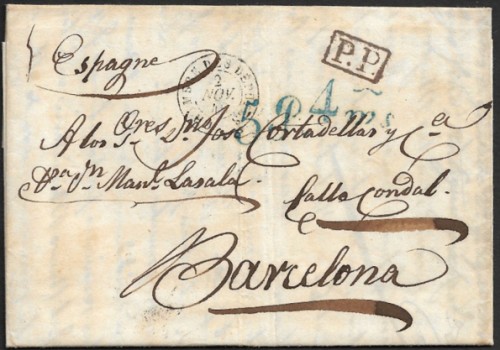 Espagne
2
NOV.
P.P.
5 R. 4 ms
A los Sres Dn José Cortadellas y Ca
Dn Manl Lasala.
Calle Condal.
Barcelona